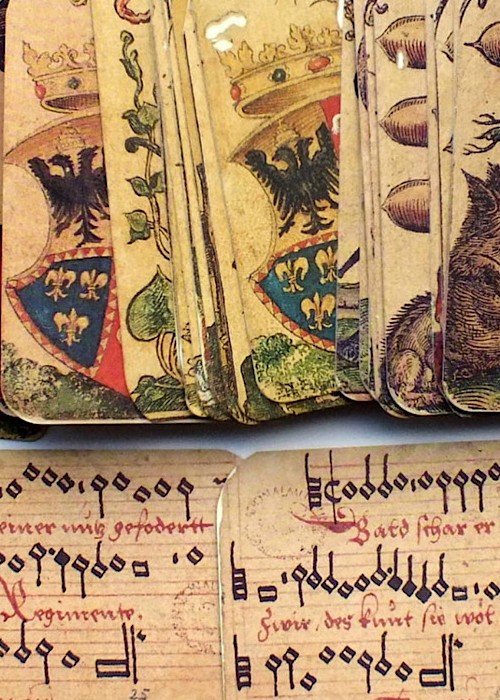 einer nutz gefodertt
Regimente.
25
Bald schar er
Fwir, des kunt sie wol